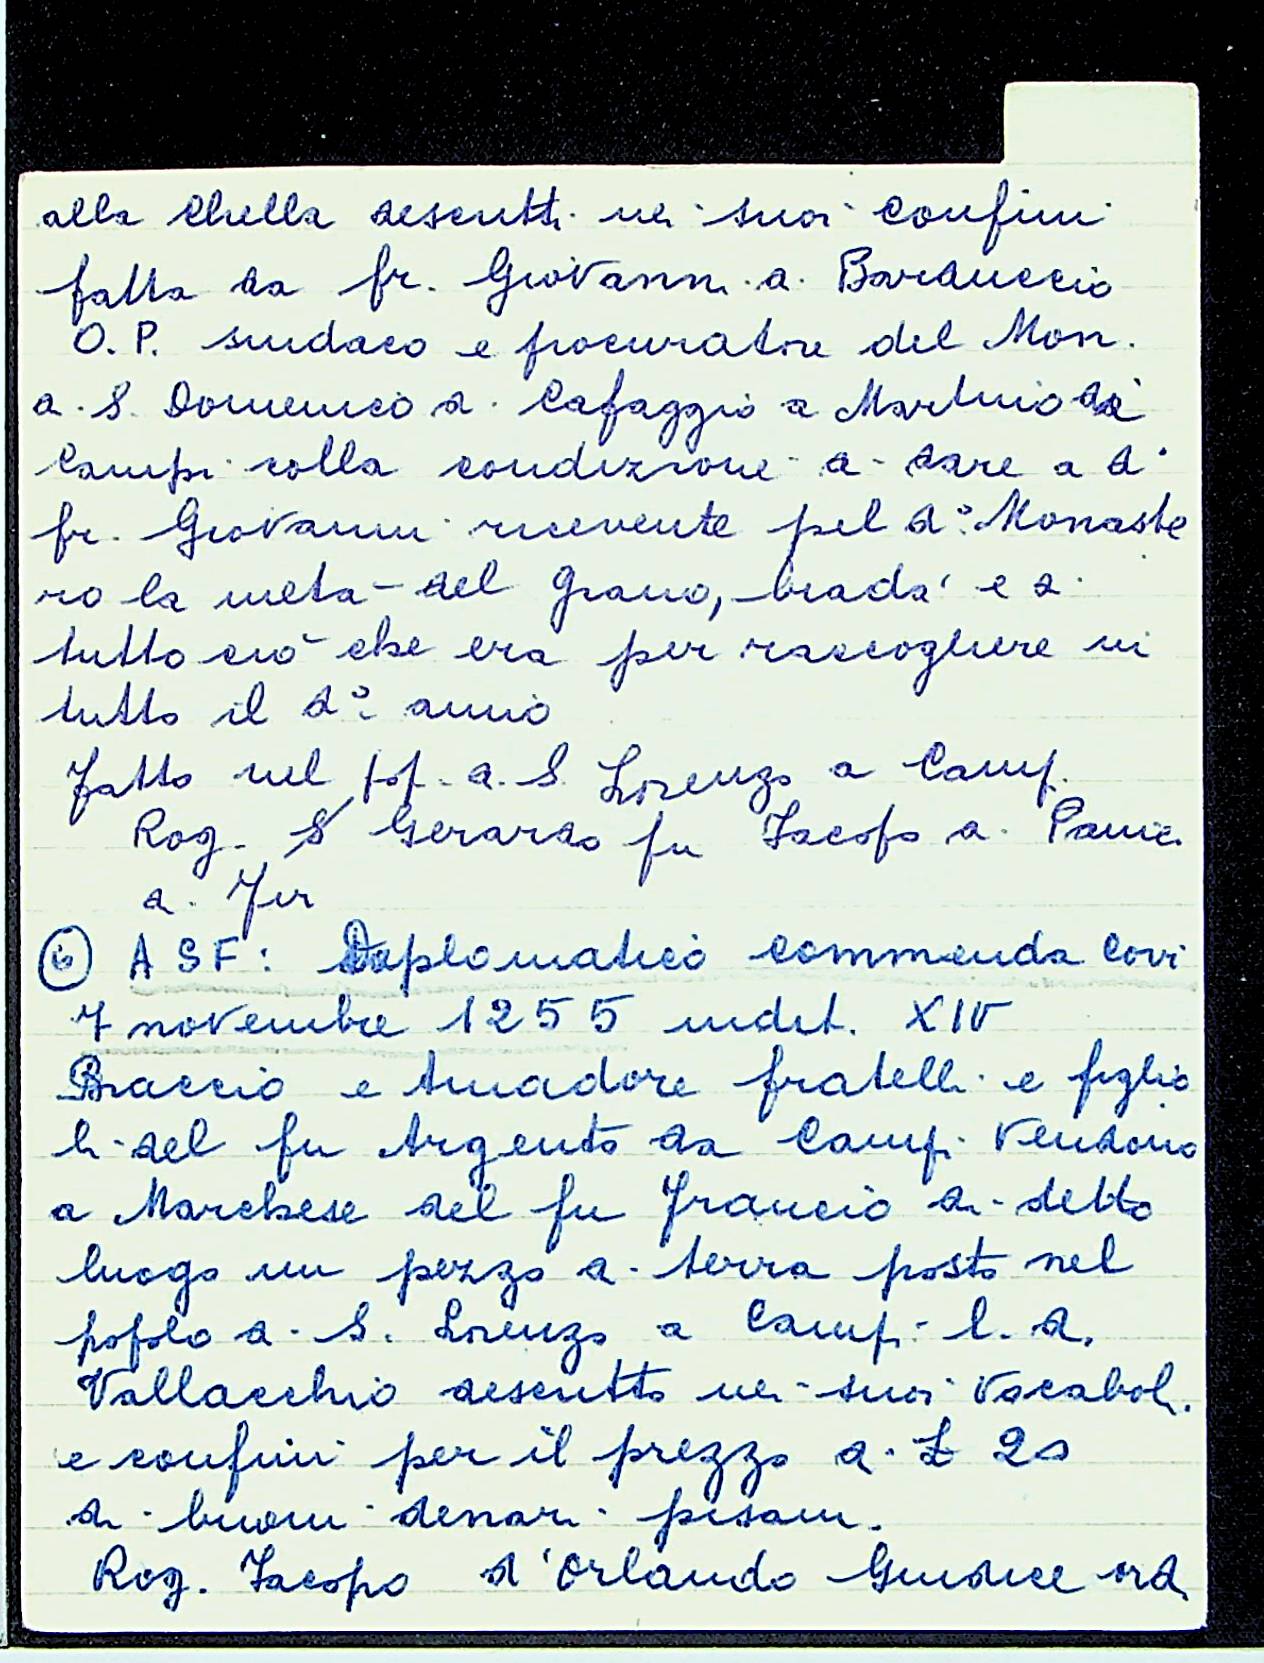 alla Chella descritti nei suoi confini
fatta da fr. Giovanni di Barduccio
O. P. sindaco e procuratore del Mon.
di S. Domenico di Cafaggio a Martino da
Campi colla condizione di dare a d°
fr. Giovanni ricevente pel d° Monaste
ro la metà del grano, biada e di
tutto ciò che era per raccogliere in
tutto il d° anno
Fatto nel pop. di S. Lorenzo a Campi
Rog. S Gerardo fu Iacopo di
di
⑥ ASF: Diplomatico commenda Covi
7 novembre 1255 indit. XIV
Braccio e Amadore fratelli e figlio
li del fu Argento da Campi vendono
a Marchese del fu Francio di detto
luogo un pezzo di terra posto nel
popolo di S. Lorenzo a Campi l. d.
Vallacchio descritto nei suoi vocaboli.
e confini per il prezzo di £
di buoni denari pisani.
Rog. Iacopo d'Orlando Giudice ord.